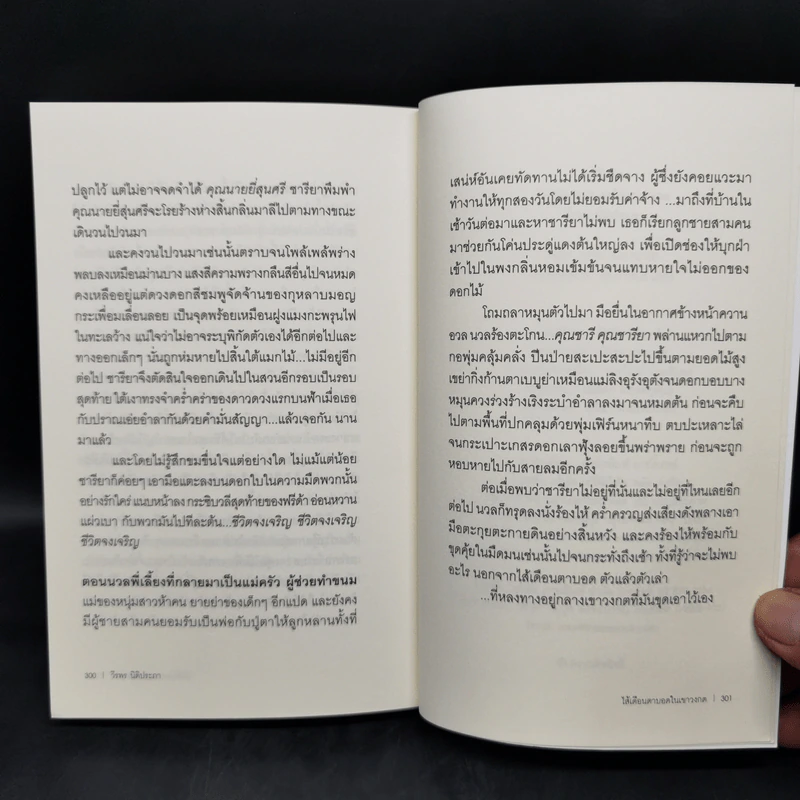 ปลูกไว้ แต่ไม่อาจจดจำได้ คุณนายยี่สุ่นศรี ชารียาพึมพำ
คุณนายยี่สุ่นศรีจะโรยร้างห่างสิ้นกลิ่นมาลีไปตามทางขณะ
เดินวนไปวนมา
และคงวนไปวนมาเช่นนั้นตราบจนโพล้เพล้พร่าง
พลบลงเหมือนม่านบาง แสงสีครามพรางกลืนสีอื่นไปจนหมด
คงเหลืออยู่แต่ดวงดอกสีชมพูจัดจ้านของกุหลาบมอญ
กระเพื่อมเลื่อนลอย เป็นจุดพร้อยเหมือนฝูงแมงกะพรุนไฟ
ในทะเลว้าง แน่ใจว่าไม่อาจระบุพิกัดตัวเองได้อีกต่อไปและ
ทางออกเล็กๆ นั่นถูกห่มหายไปสิ้นใต้แมกไม้...ไม่มีอยู่อีก
ต่อไป ชารียาจึงตัดสินใจออกเดินไปในสวนอีกรอบเป็นรอบ
สุดท้าย ใต้เงาทรงจำคร่ำคร่าของดาวดวงแรกบนฟ้าเมื่อเธอ
กับปราณเอ่ยอำลากันด้วยคำมั่นสัญญา...แล้วเจอกัน นาน
มาแล้ว
และโดยไม่รู้สึกขมขื่นใจแต่อย่างใด ไม่แม้แต่น้อย
ชารียาก็ค่อยๆ เอามือแตะลงบนดอกใบในความมืดพวกนั้น
อย่างรักใคร่ แนบหน้าลง กระซิบวลีสุดท้ายของฟรีด้า อ่อนหวาน
แผ่วเบา กับพวกมันไปทีละต้น...ชีวิตจงเจริญ ชีวิตจงเจริญ
ชีวิตจงเจริญ
ตอนนวลพี่เลี้ยงที่กลายมาเป็นแม่ครัว ผู้ช่วยทำขนม
แม่ของหนุ่มสาวห้าคน ยายย่าของเด็กๆ อีกแปด และยังคง
มีผู้ชายสามคนยอมรับเป็นพ่อกับปู่ตาให้ลูกหลานทั้งที่
300 | วีรพร นิติประภา
เสน่ห์อันเคยทัดทานไม่ได้เริ่มซีดจาง ผู้ซึ่งยังคอยแวะมา
ทำงานให้ทุกสองวันโดยไม่ยอมรับค่าจ้าง ...มาถึงที่บ้านใน
เช้าวันต่อมาและหาชารียาไม่พบ เธอก็เรียกลูกชายสามคน
มาช่วยกันโค่นประดู่แดงต้นใหญ่ลง เพื่อเปิดช่องให้บุกฝ่า
เข้าไปในพงกลิ่นหอมเข้มข้นจนแทบหายใจไม่ออกของ
ดอกไม้
โถมถลาหมุนตัวไปมา มือยื่นในอากาศข้างหน้าควาน
อวล นวลร้องตะโกน...คุณชารี คุณชารียา พล่านแหวกไปตาม
กอพุ่มคลุ้มคลั่ง ปีนป่ายสะเปะสะปะไปขึ้นตามยอดไม้สูง
เขย่ากิ่งก้านตาเบบูย่าเหมือนแม่ลิงอุรังอุตังจนดอกบอบบาง
หมุนคว้งร่วงร้างเริงระบำอำลาลงมาจนหมดต้น ก่อนจะคืบ
ไปตามพื้นที่ปกคลุมด้วยพุ่มเฟิร์นหนาทึบ ตบปะเหลาะไล่
จนกระเปาะเกสรดอกเลาฟุ้งลอยขึ้นพร่าพราย ก่อนจะถูก
หอบหายไปกับสายลมอีกครั้ง
ต่อเมื่อพบว่าชารียาไม่อยู่ที่นั่นและไม่อยู่ที่ไหนเลยอีก
ต่อไป นวลก็ทรุดลงนั่งร้องไห้ คร่ำครวญส่งเสียงดังพลางเอา
มือตะกุยตะกายดินอย่างสิ้นหวัง และคงร้องไห้พร้อมกับ
ขุดคุ้ยในมืดมนเช่นนั้นไปจนกระทั่งถึงเช้า ทั้งที่รู้ว่าจะไม่พบ
อะไร นอกจากไส้เดือนตาบอด ตัวแล้วตัวเล่า
...ที่หลงทางอยู่กลางเขาวงกตที่มันขุดเอาไว้เอง
ไส้เดือนตาบอดในเขาวงกต | 301